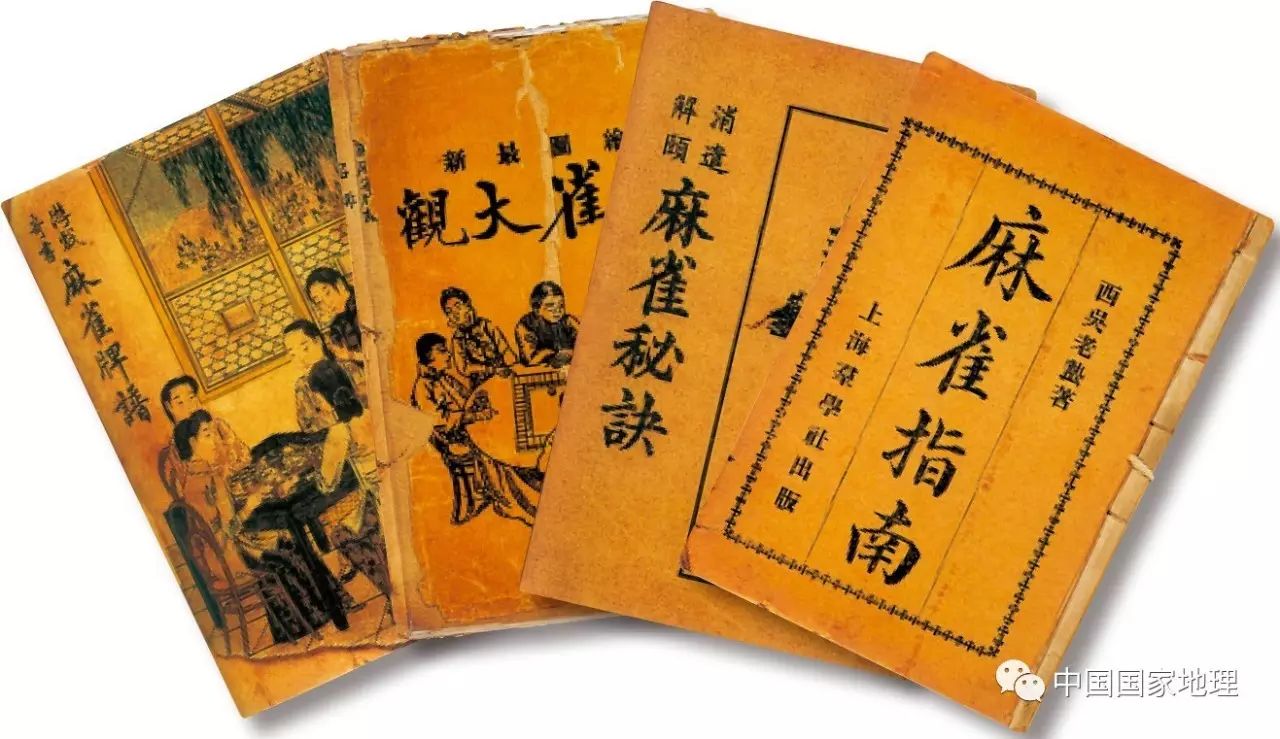 麻雀牌譜
新最圖繪
觀大雀
消遣
解頤
麻雀秘訣
西吳老憨著
麻雀指南
上海羣學社出版
中国国家地理